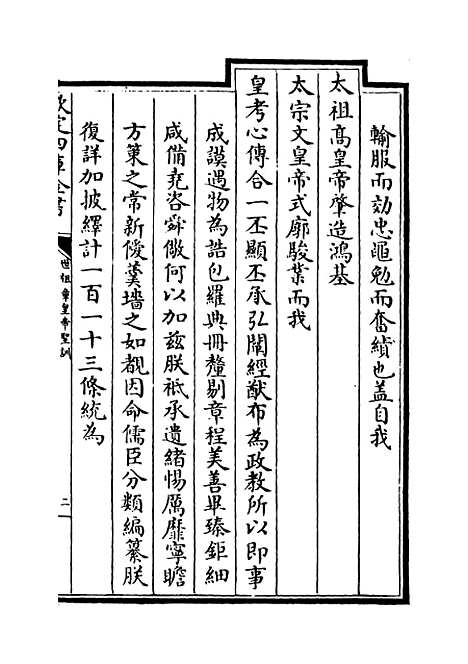 輸服而効忠黽勉而奮績也蓋自我
太祖高皇帝肇造鴻基
太宗文皇帝式廓駿業而我
皇考心傳合一丕顯丕承弘闡經猷布為政教所以即事
成謨遇物為誥包羅典冊釐剔章程美善畢臻鉅細
咸備堯咨舜儆何以加茲朕祗承遺緒惕厲靡寧瞻
方策之常新僾羹墻之如覩因命儒臣分類編纂朕
復詳加披繹計一百一十三條統為
欽定四庫全書
世祖章皇帝聖訓
二